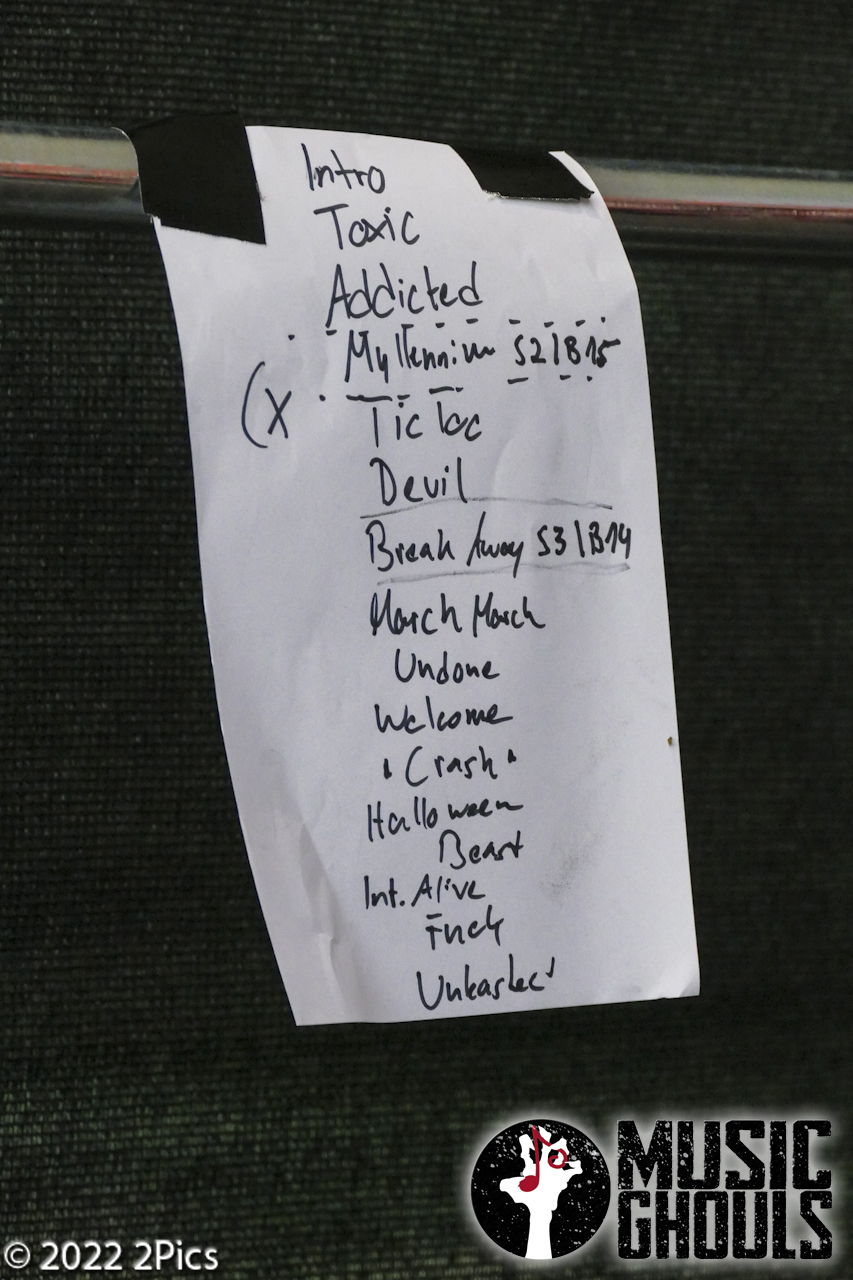 Intro
Toxic
Addicted
Myllennium S2 | B15
(X Tic Toc
Devil
Break Away S3 | B14
March March
Undone
Welcome
Crash
Halloween
Beast
Int. Alive
Fuck
Unleashed
MUSIC
GHOULS
© 2022 2Pics